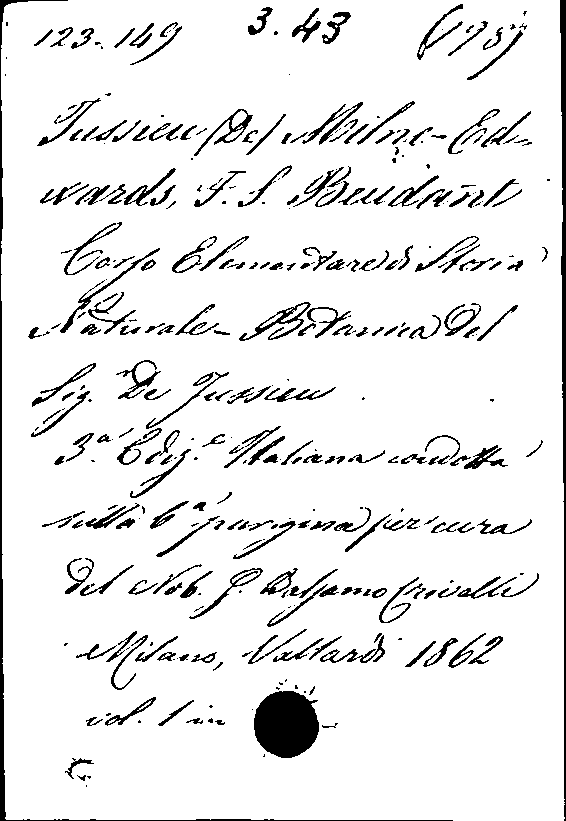 123.149 3.43
Jussieu (De) Milne-Ed-
wards, F. S. Beudant
Corso Elementare di Storia
Naturale - Botanica del
Sig.r De Jussieu
3.a Ediz.e Italiana condotta
sulla 6.a parigina per cura
del Nob. G. Balsamo Crivelli
Milano, Vallardi 1862
vol. 1 in